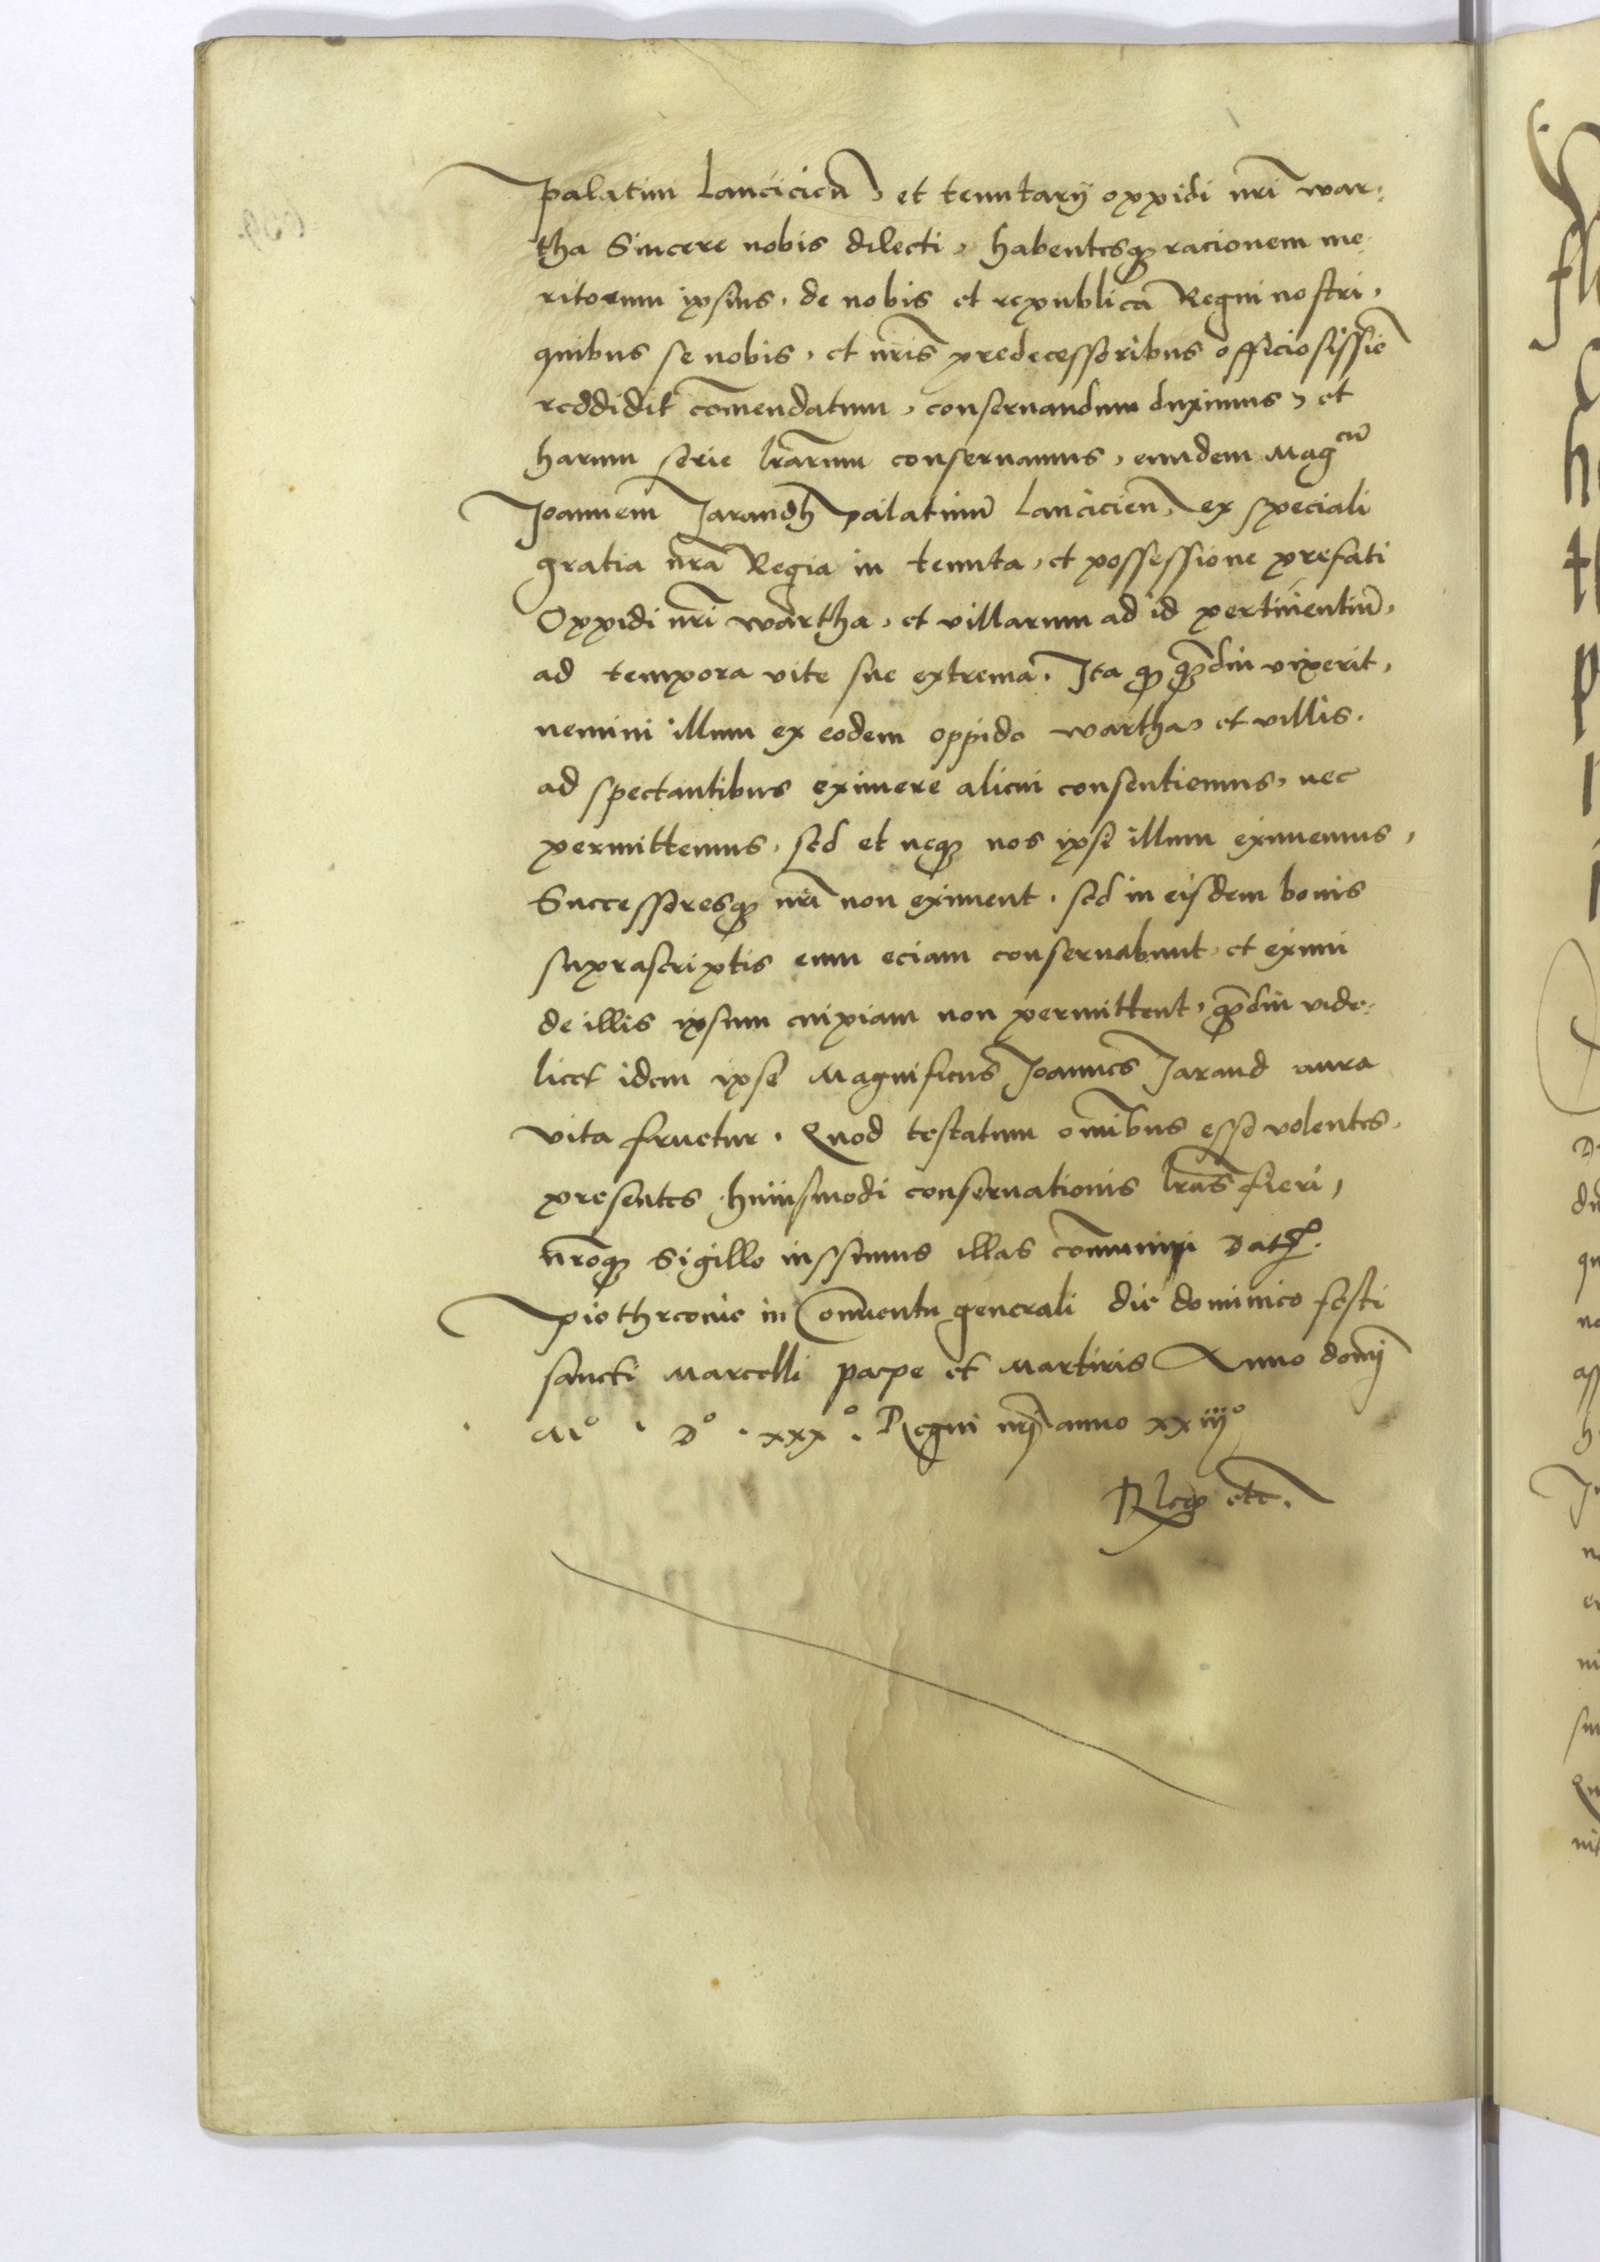 palatini Lancicien̄, et tenutarÿ oppidi nr̄i war:
tha Sincere nobis dilecti, habentesqꝫ racionem me
ritorum ipsius, de nobis et republica Regni nostri,
quibus se nobis, et nr̄is predecessoribus officiosissie̅
reddidit com̄endatum, conseruandum duximus, et
harum serie lr̄arum conseruamus, eundem Mag^cū
Joannem Jarandh palatinū Lancicien̄, ex speciali
gratia nr̄a Regia in tenuta, et possessione prefati
Oppidi nr̄i wartha, et villarum ad id pertinentiū,
ad tempora vite sue extrema. Ita qꝫ qꝫdiu vixerit,
nemini illum ex eodem oppido wartha, et villis
ad spectantibus eximere alicui consentiemus, nec
permittemus, sed et neqꝫ nos ipsi illum eximemus,
Successoresqꝫ nr̄i non eximent, sed in eisdem bonis
suprascriptis eum eciam conseruabunt, et eximi
de illis ipsum cuipiam non permittent, qꝫdiu vide:
licet idem ipse Magnificus Joannes Jarand aura
vita fruetur. Quod testatum om̄ibus esse volentes,
presentes huiusmodi conseruationis lr̄as fieri,
nr̄oqꝫ Sigillo iussimus illas com̄uniri Dat̄.
piothrconie in Conuentu generali die dominico festi
sancti Marcelli pape et Martiris Anno domī
M° . D° . xxx°. Regni nr̄j anno xxiiij°
Rex etc.